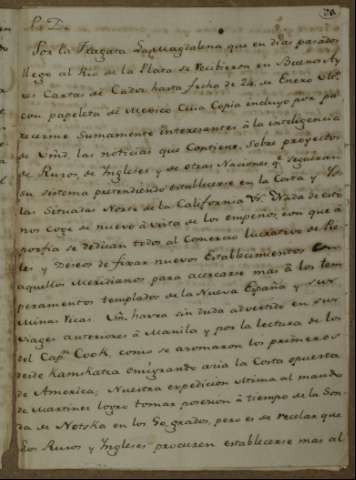 20
P. D.
Por la Fragata La Magdalena que en dias pasados
llego al Rio de la Plata se recibieron en Buenos Ay
res Cartas de Cadiz hasta fecha de 24 de Enero Ul.º
con papeleta de Mexico Cuia Copia incluyo por pa
recerme Sumamente interezantes â la inteligencia
de Vmd. las noticias que Contiene. Sobre proyectos
de Rusos, de Ingleses y de otras Naciones q.e seguiran
su sistema pretendiendo establecerse en la Costa y Ys
las Situadas Norte de la California Vs. Nada de esto
nos Coge de nuevo â vista de los empeños con que â
porfia se dedican todos al Comercio lucrativo de Pie
les y Deseos de fixar nuevos Establecimientos en
aquellos Meridianos para acercarse mas â los tem
peramentos templados de la Nueva España y sus
Minas Ricas. Vm. havra sin duda advertido en sus
viages anteriores â Manila y por la lectura de los
del Cap.n Cook, como se asomaron los primeros
desde Kamkatca emigrando azia la Costa opuesta
de America; Nuestra expedicion ultima al mando
de Martinez logro tomar posesion â tiempo de la Son
da de Notska en los 50 grados, pero es de recelar que
los Rusos y Ingleses procuren establecerse mas al